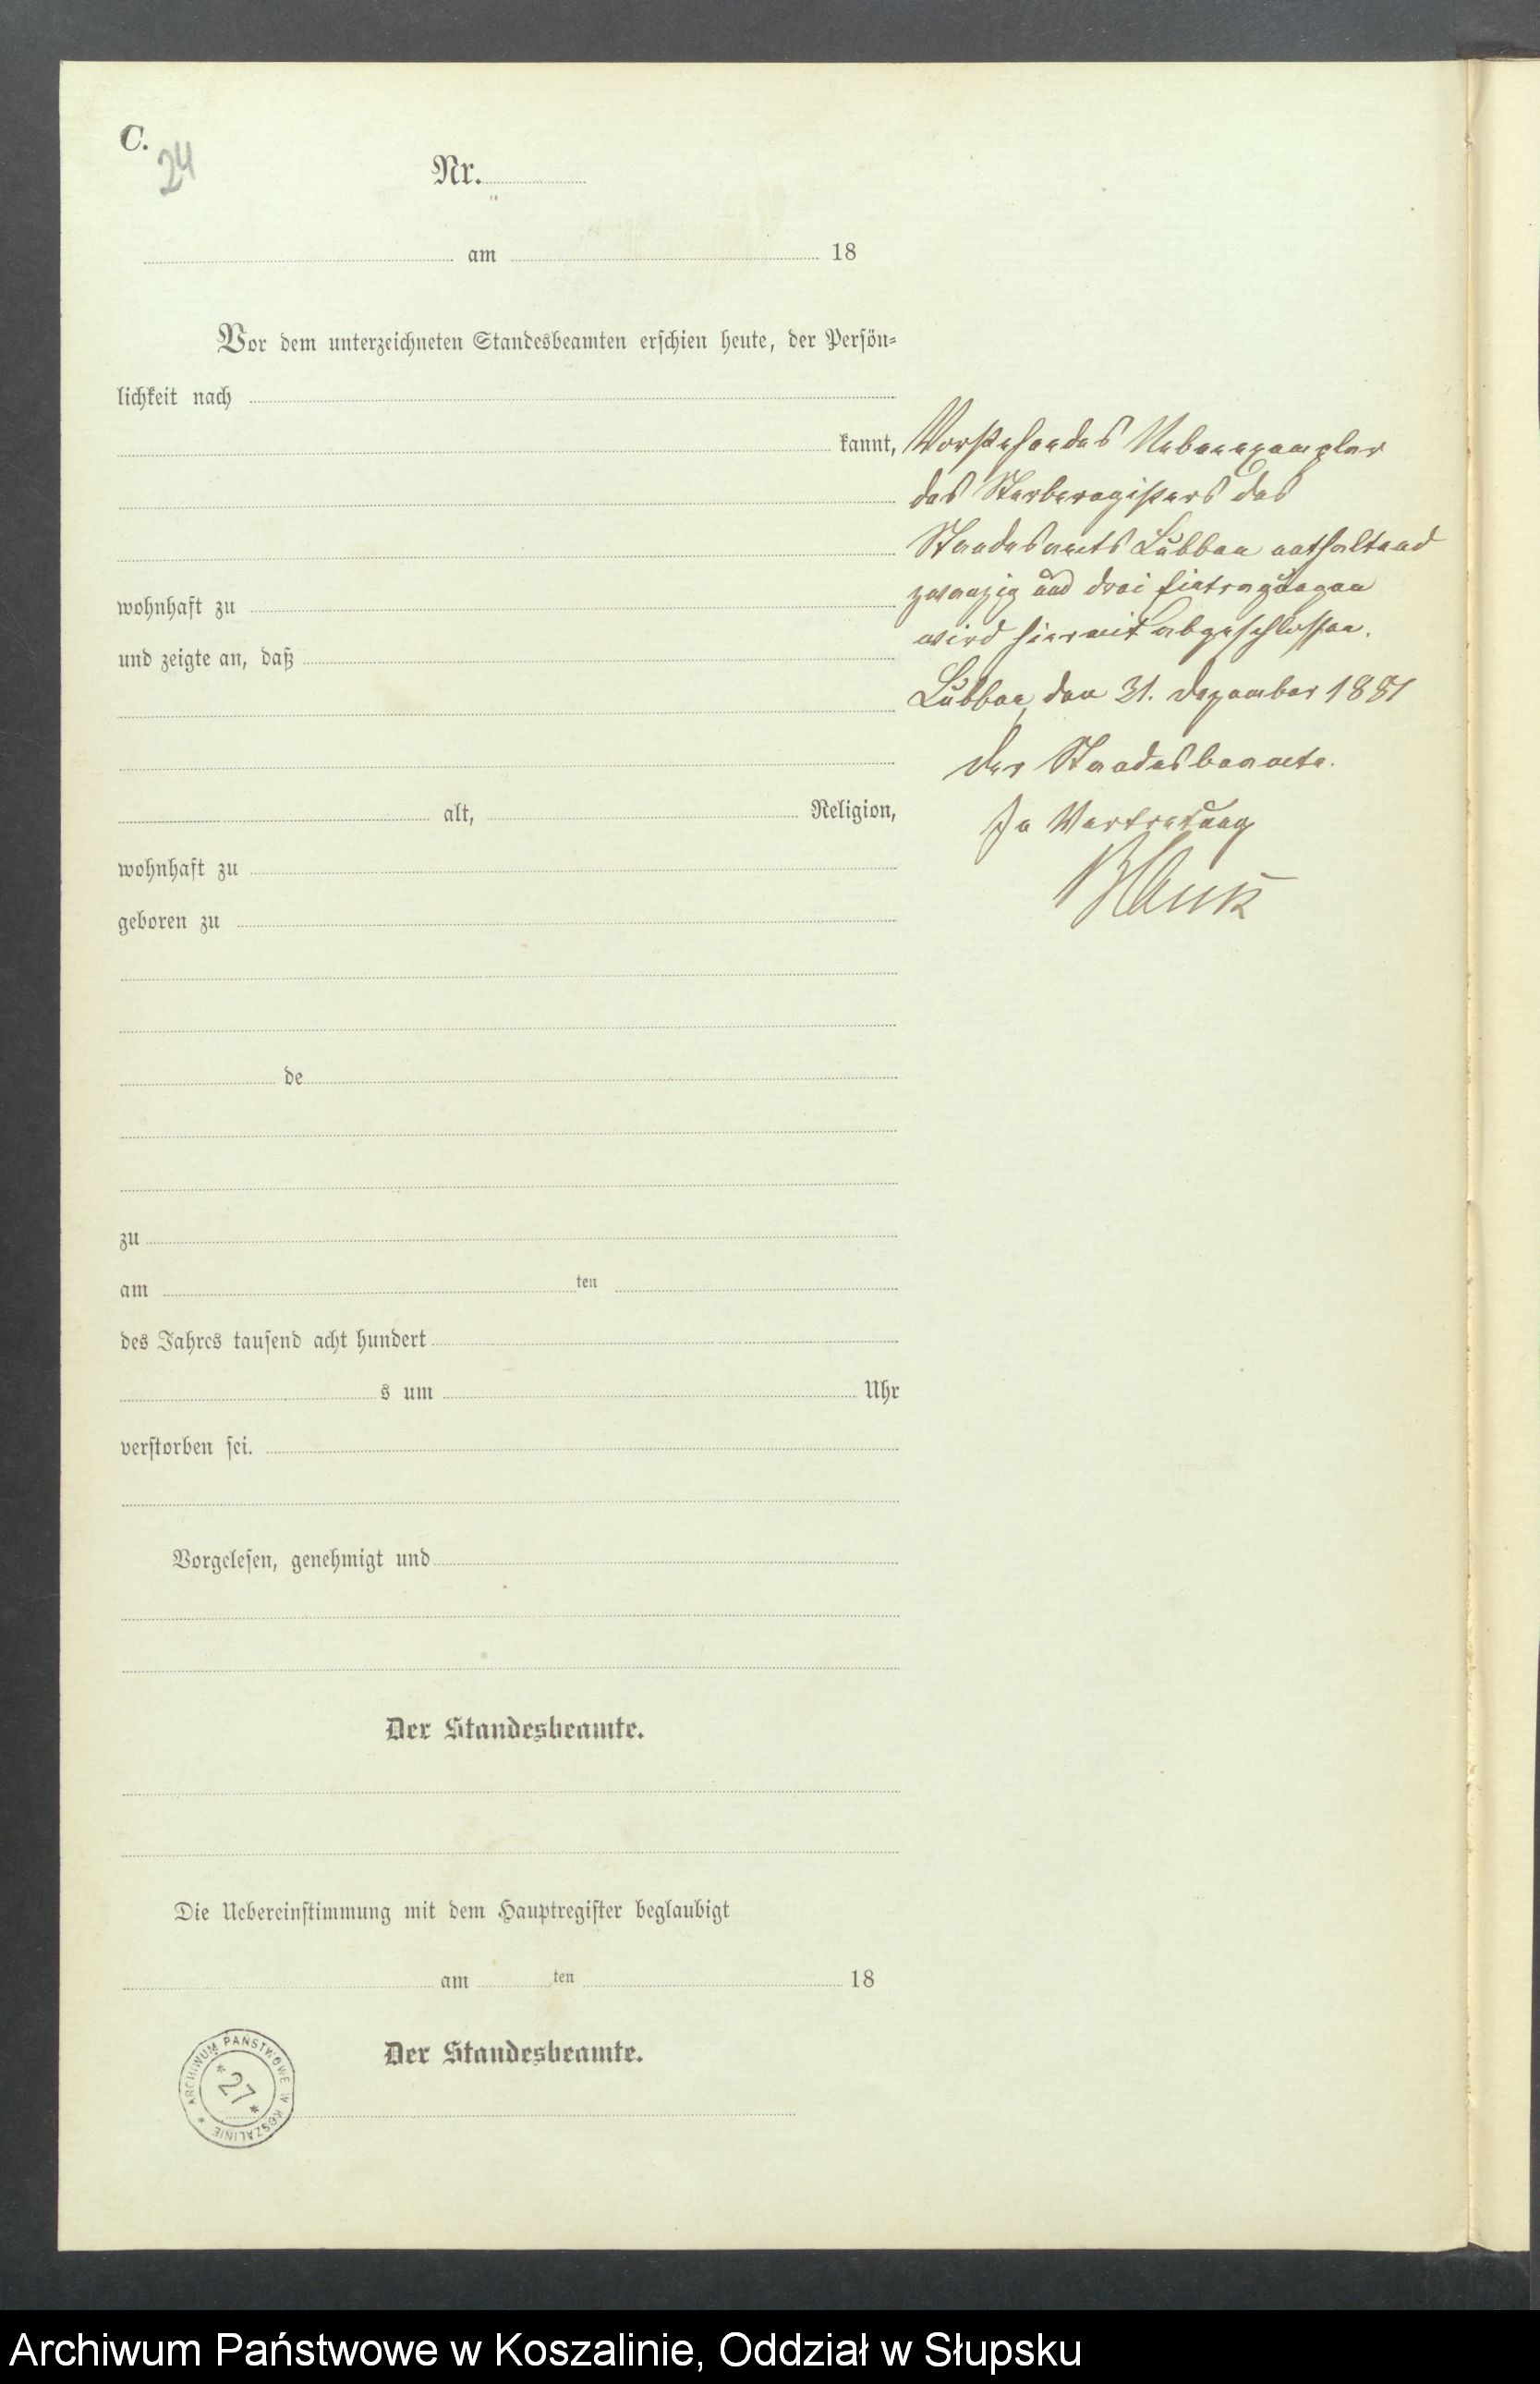 C.
24
Nr.
am 18
Vor dem unterzeichneten Standesbeamten erschien heute, der Persön-
lichkeit nach
kannt,
wohnhaft zu
und zeigte an, daß
alt, Religion,
wohnhaft zu
geboren zu
de
zu
am ten
des Jahres tausend acht hundert
s um Uhr
verstorben sei.
Vorgelesen, genehmigt und
Der Standesbeamte.
Die Uebereinstimmung mit dem Hauptregister beglaubigt
am ten 18
Der Standesbeamte.
Vorstehendes Nebenexemplar
des Sterberegisters des
Standesamts Lübben enthaltend
zwanzig und drei Eintragungen
wird hiermit abgeschlossen.
Lübben, den 31. Dezember 1881
Der Standesbeamte.
In Vertretung
ARCHIWUM PAŃSTWOWE W KOSZALINIE
* 27 *
Archiwum Państwowe w Koszalinie, Oddział w Słupsku